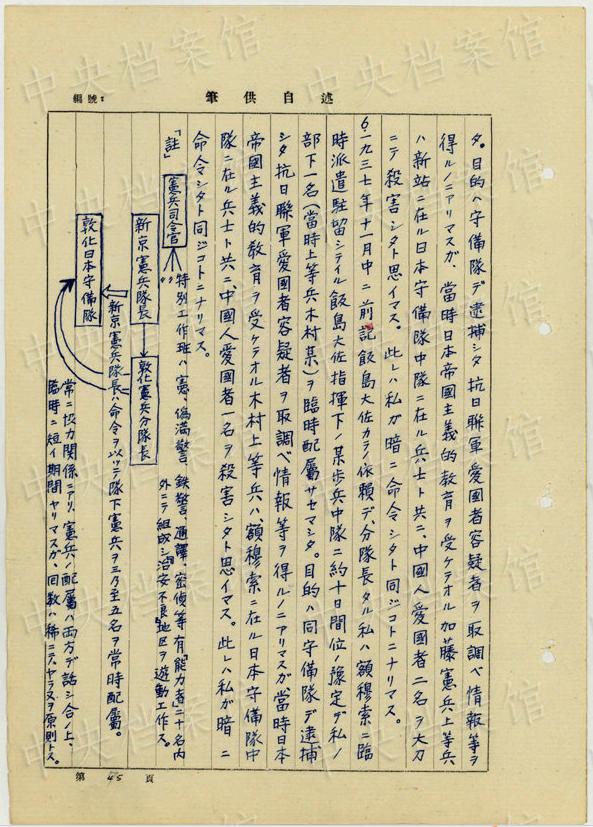 編號:
筆供自述
タ。目的ハ守備隊デ逮捕シタ抗日聯軍愛國者容疑者ヲ取調ベ情報等ヲ
得ルノニアリマスガ、當時日本帝國主義的教育ヲ受ケテオル加藤憲兵上等兵
ハ新站ニ在ル日本守備隊中隊ニ在ル兵士ト共ニ、中國人愛國者二名ヲ大刀
ニテ殺害シタト思イマス。此レハ私ガ暗ニ命令シタト同ジコトニナリマス。
6.一九三七年十一月中ニ前記飯島大佐カラノ依頼デ、分隊長タル私ハ額穆索ニ臨
時派遣駐留シテイル飯島大佐指揮下ノ某歩兵中隊ニ約十日間位ノ豫定デ私ノ
部下一名(當時上等兵木村某)ヲ臨時配屬サセマシタ。目的ハ同守備隊デ逮捕
シタ抗日聯軍愛國者容疑者ヲ取調ベ情報等ヲ得ルノニアリマスガ當時日本
帝國主義的教育ヲ受ケテオル木村上等兵ハ、額穆索ニ在ル日本守備隊中
隊ニ在ル兵士ト共ニ、中國人愛國者一名ヲ殺害シタト思イマス。此レハ私ガ暗ニ
命令シタト同ジコトニナリマス。
「註」
憲兵司令官
特別工作班ハ憲、偽滿警、鉄警、通譯、密偵等有能力者二十名内
外ニテ組成シ治安不良地區ヲ遊動工作ス。
新京憲兵隊長
敦化憲兵分隊長
新京憲兵隊長ハ命令ヲ以ッテ隊下憲兵ヲ三乃至五名ヲ常時配屬。
敦化日本守備隊
常ニ協力関係ニアリ、憲兵ノ配屬ハ両方デ話シ合ノ上、
臨時ニ短イ期間ヤリマスガ、回数ハ稀ニテ、ヤラヌヲ原則トス。
第 45 頁
中央档案馆